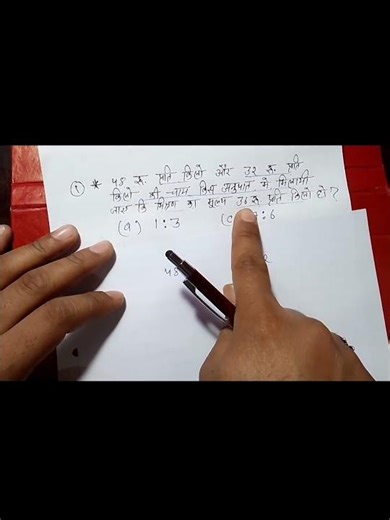 १ * ५8 रू. प्रति किलो और ३२ रू. प्रति
किलो की चाय किस अनुपात में मिलायी
जाय कि मिश्रण का मूल्य ३६ रू प्रति किलो हो?
(a) 1 : 3 (c) : 6
५8